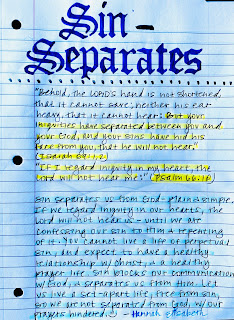 Sin
Separates
"Behold, the LORD'S hand is not shortened,
that it cannot save; neither his ear
heavy, that it cannot hear: But your
iniquities have separated between you and
your God, and your sins have hid his
face from you, that he will not hear."
(Isaiah 59:1,2)
"If I regard iniquity in my heart, the
Lord will not hear me:" (Psalm 66:18)
Sin separates us from God - plain & simple.
If we regard iniquity in our hearts, the
Lord will not hear us - until we are
confessing our sin to Him & repenting
of it. You cannot live a life of perpetual
sin, and expect to have a healthy
relationship w/ Christ, & a healthy
prayer life. Sin blocks our communication
w/ God, & separates us from Him. Let
us live a set-apart life, free from sin,
so we are not separated from God, w/ our
prayers hindered. :) - Hannah Elisabeth